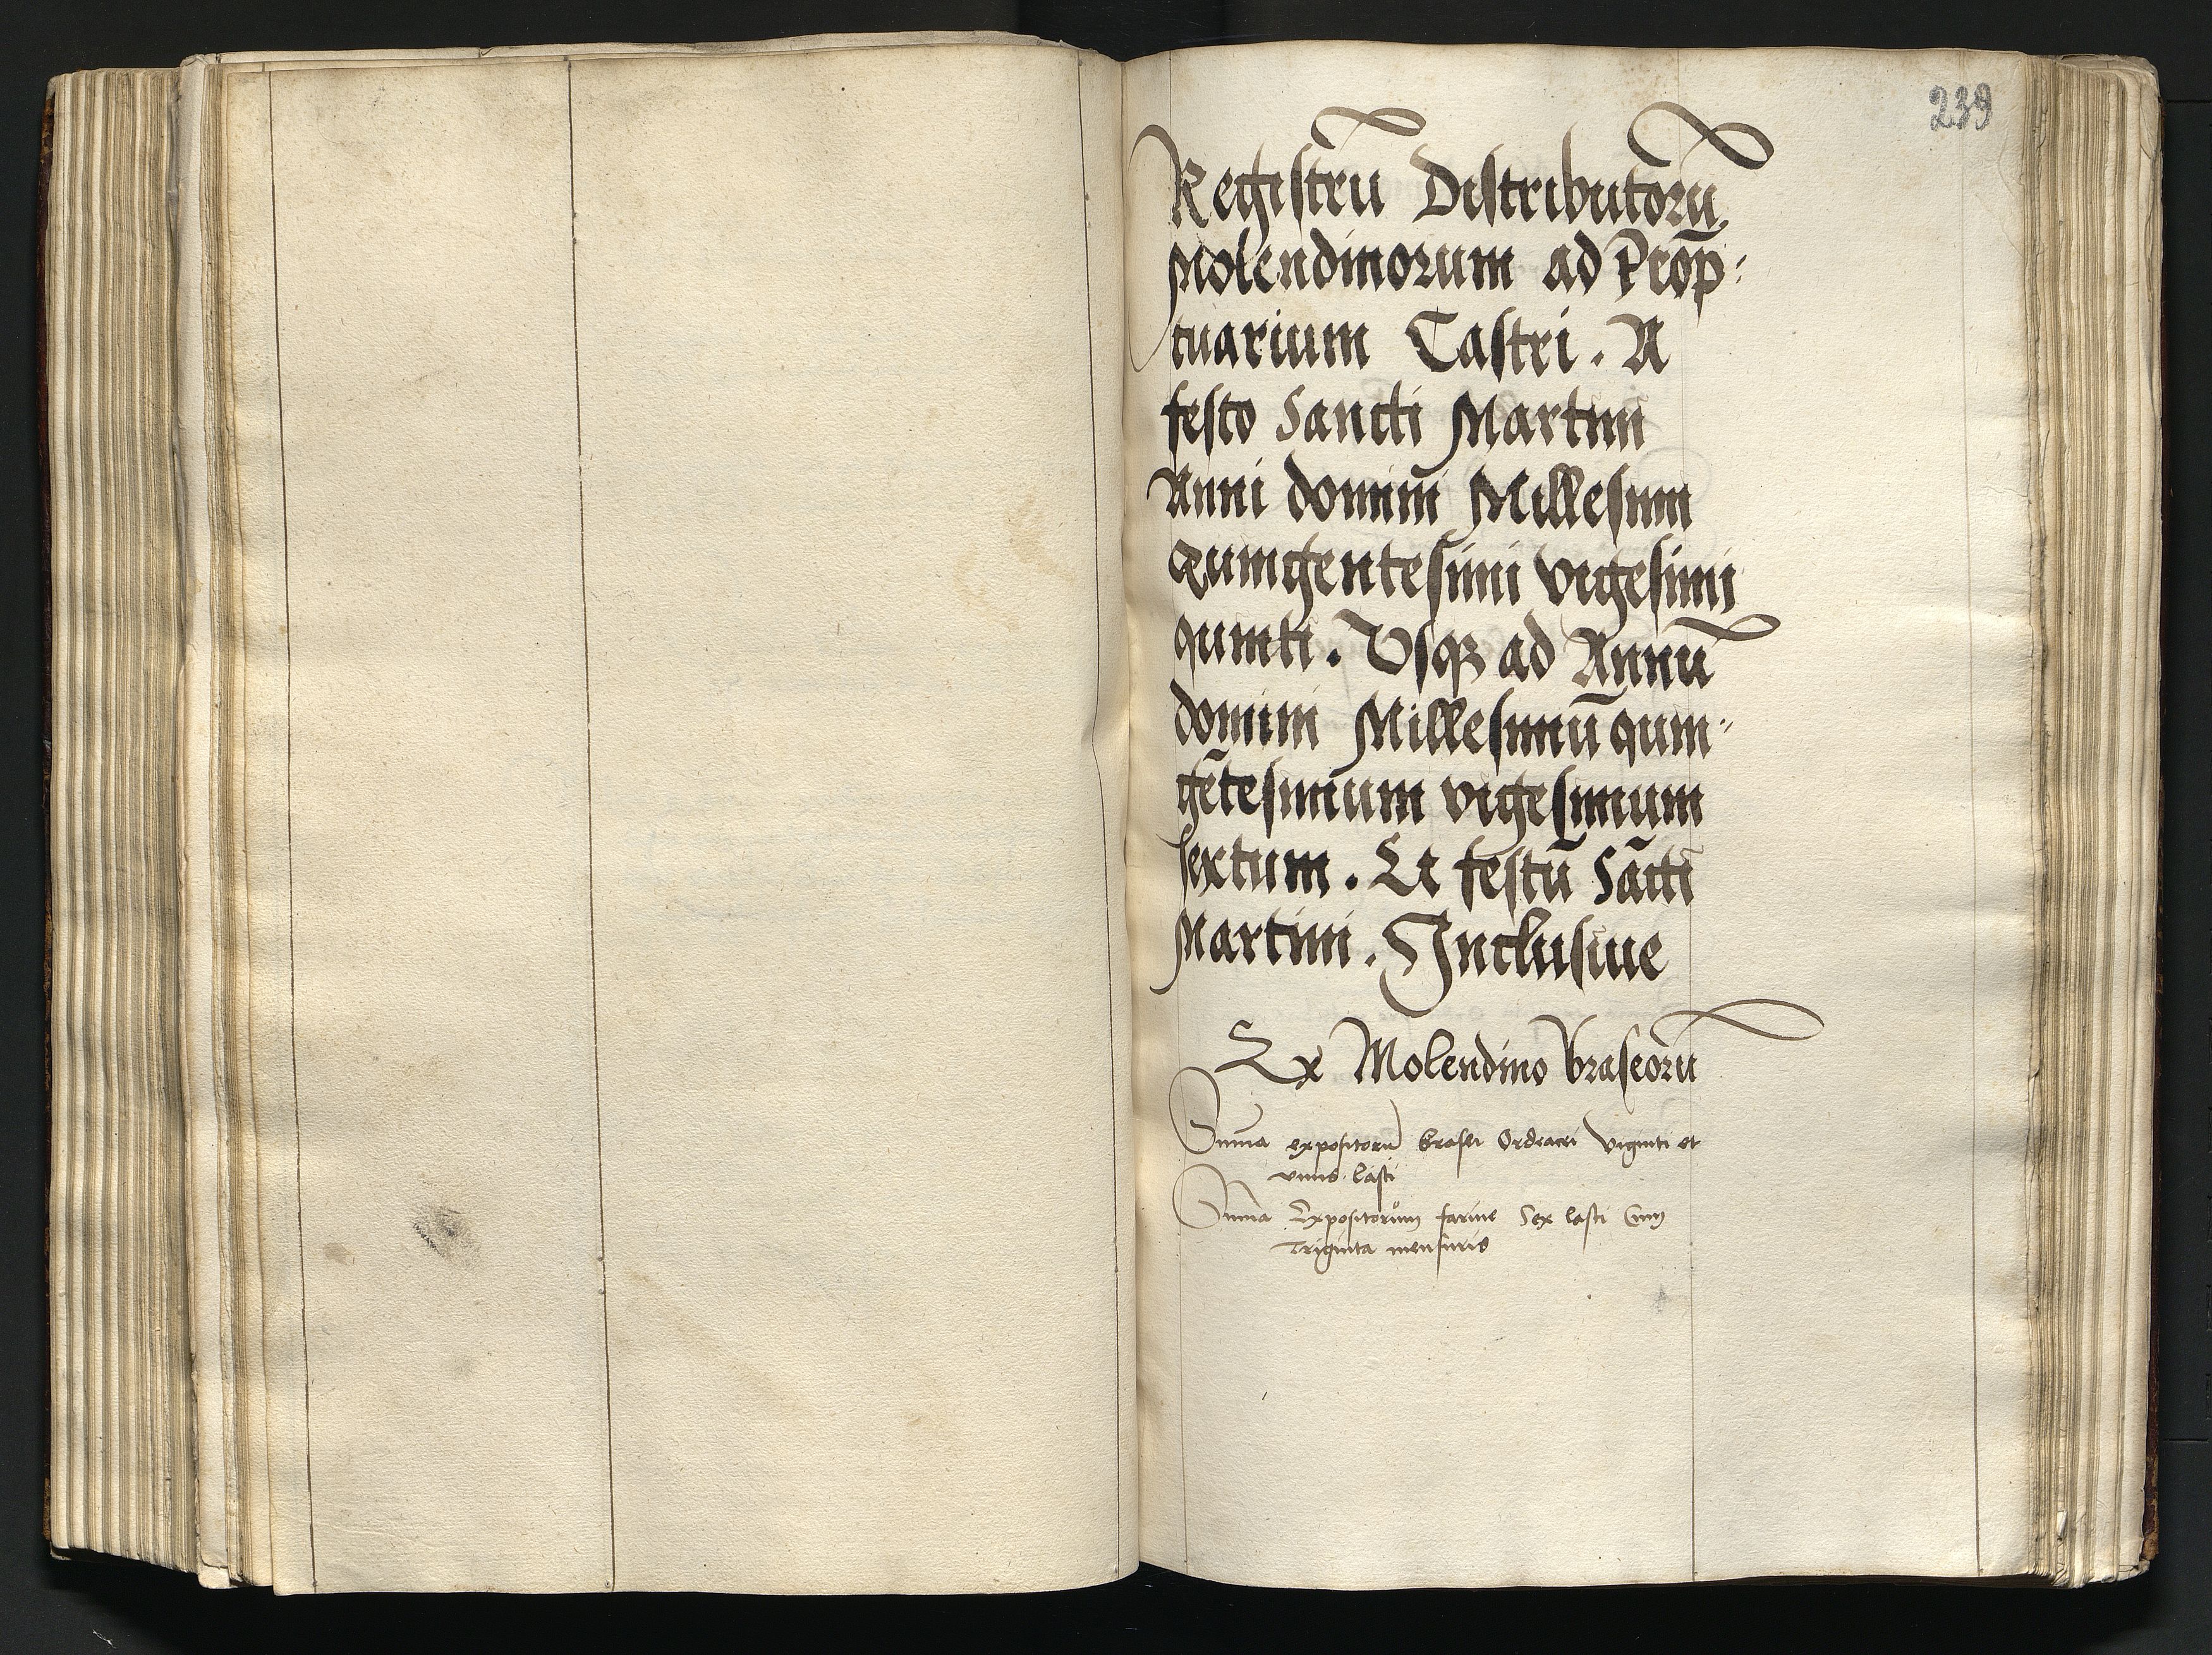 239
Registrū Distributorū
Molendinorum ad Prōp⸗
tuarium Castri. A
festo Sancti Martini
Anni domini Millesimi
Quingentesimi vigesimi
quinti. Vsqꝫ ad Annū
domini Millesimū quin⸗
gētesimum vigesimum
sextum. Et festū Sācti
Martini. Inclusiue
Ex Molendino braseorū
Suma expositorū brasei Ordeacei viginti et
vnus lasti
Suma Expositorum farine Sex lasti Cum
Triginta mensuris